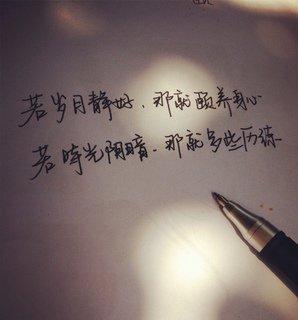 若岁月静好、那就颐养身心
若時光阴暗、那就多些历练